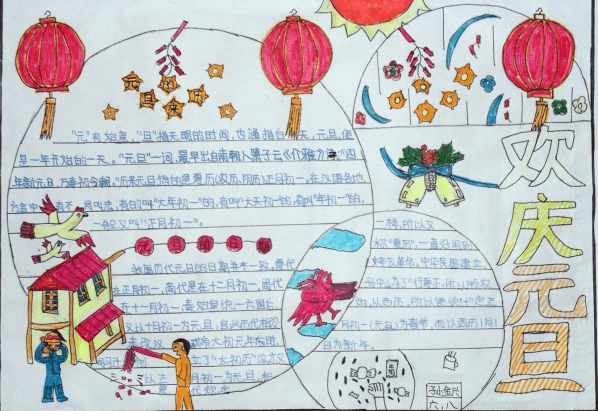 欢庆元旦
"元"有始意，"旦"指天明的时间，也通指白天，元旦，便
是一年开始的一天。"元旦"一词，最早出自南朝人萧子云《介雅》诗："四
年新元旦，万寿初今朝。"历来元旦指的是夏历(农历、阴历)正月初一。在汉语各地
方言中 有不同叫法，有的叫"大年初一"的，有叫"大天初一"的，有叫"年初一"的，
一般又叫"正月初一"。
元旦的日期
我国历代元旦的日期并不一致。夏代
在正月初一，商代是在十二月初一，周代
在十一月初一，秦始皇统一六国后，
又以十月初一为元旦，自此历代相沿
未改 汉武帝太初元年时，
司马 了"太初历"，这才又
以正月初一为元旦，和
一样，所以又
称"夏历"，一直沿用到
辛亥革命。中华民国建立，
孙中山为了"行夏正，所以顺农
时，从西历，所以便统计"，定正
月初一(元旦)为春节，而以西历1月1
日为新年。
孙金兴
六、八